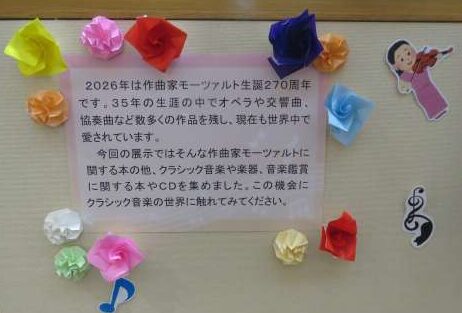 2026年は作曲家モーツァルト生誕270周年
です。35年の生涯の中でオペラや交響曲、
協奏曲など数多くの作品を残し、現在も世界中で
愛されています。
今回の展示ではそんな作曲家モーツァルトに
関する本の他、クラシック音楽や楽器、音楽鑑賞
に関する本やCDを集めました。この機会に
クラシック音楽の世界に触れてみてください。